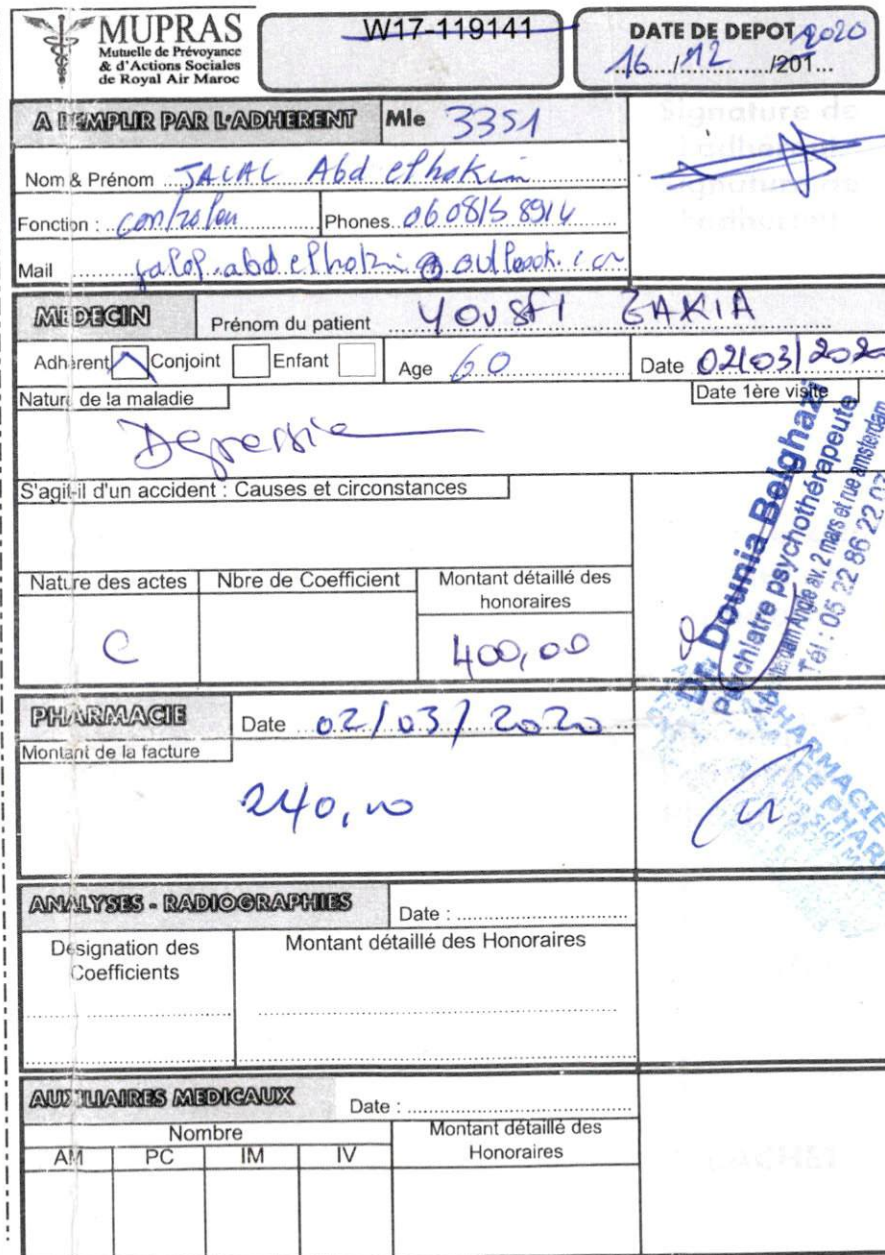 MUPRAS
Mutuelle de Prévoyance
& d'Actions Sociales
de Royal Air Maroc
W17-119141
DATE DE DEPOT 2020
16 / 12 /201...
A REMPLIR PAR L'ADHERENT Mle 3351
Nom & Prénom JALAL Abdelhakim
Fonction : Phones 0608158914
Mail
MEDECIN Prénom du patient YOUSFI ZAKIA
Adhérent Conjoint Enfant Age 60 Date 02/03/2020
Nature de la maladie Date 1ère visite
Depression
S'agit-il d'un accident : Causes et circonstances
Nature des actes Nbre de Coefficient Montant détaillé des honoraires
C 400,00
Dr. Dounia Belghazi
Psychiatre psychothérapeute
Angle av. 2 mars et rue amsterdam
Tél : 05 22 86 22 07
PHARMACIE Date 02/03/2020
Montant de la facture
240,00
PHARMACIE
ANALYSES - RADIOGRAPHIES Date :
Désignation des Coefficients Montant détaillé des Honoraires
AUXILIAIRES MEDICAUX Date :
Nombre Montant détaillé des Honoraires
AM PC IM IV